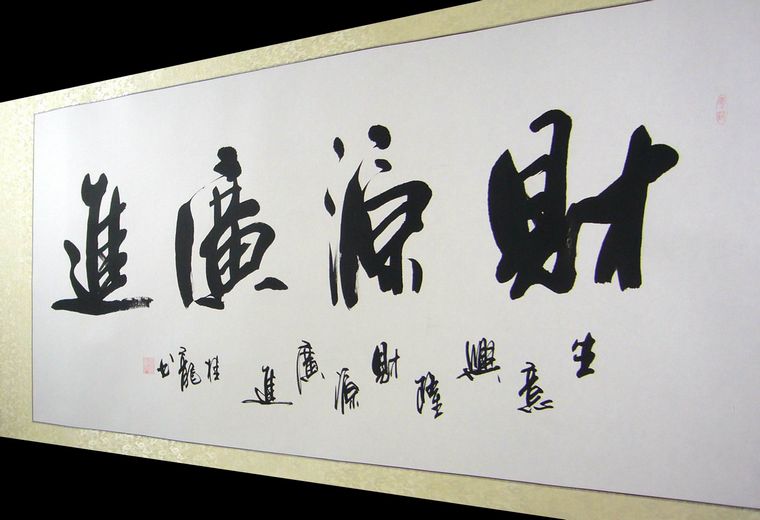 財源廣進
生意興隆財源廣進 桂龍书